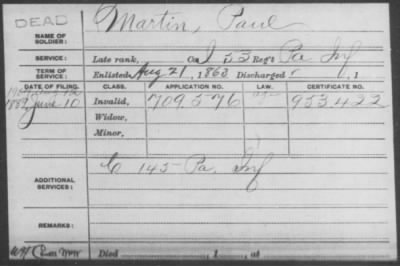 DEAD
Martin, Paul
NAME OF SOLDIER:
SERVICE: Late rank, Co. I 53 Reg't Pa Inf
TERM OF SERVICE: Enlisted Aug 21, 1863 Discharged , 1
DATE OF FILING. CLASS. APPLICATION NO. LAW. CERTIFICATE NO.
1889 June 10 Invalid, 709576 953422
Widow,
Minor,
ADDITIONAL SERVICES: C 145 Pa. Inf
REMARKS:
Died , 1 , at